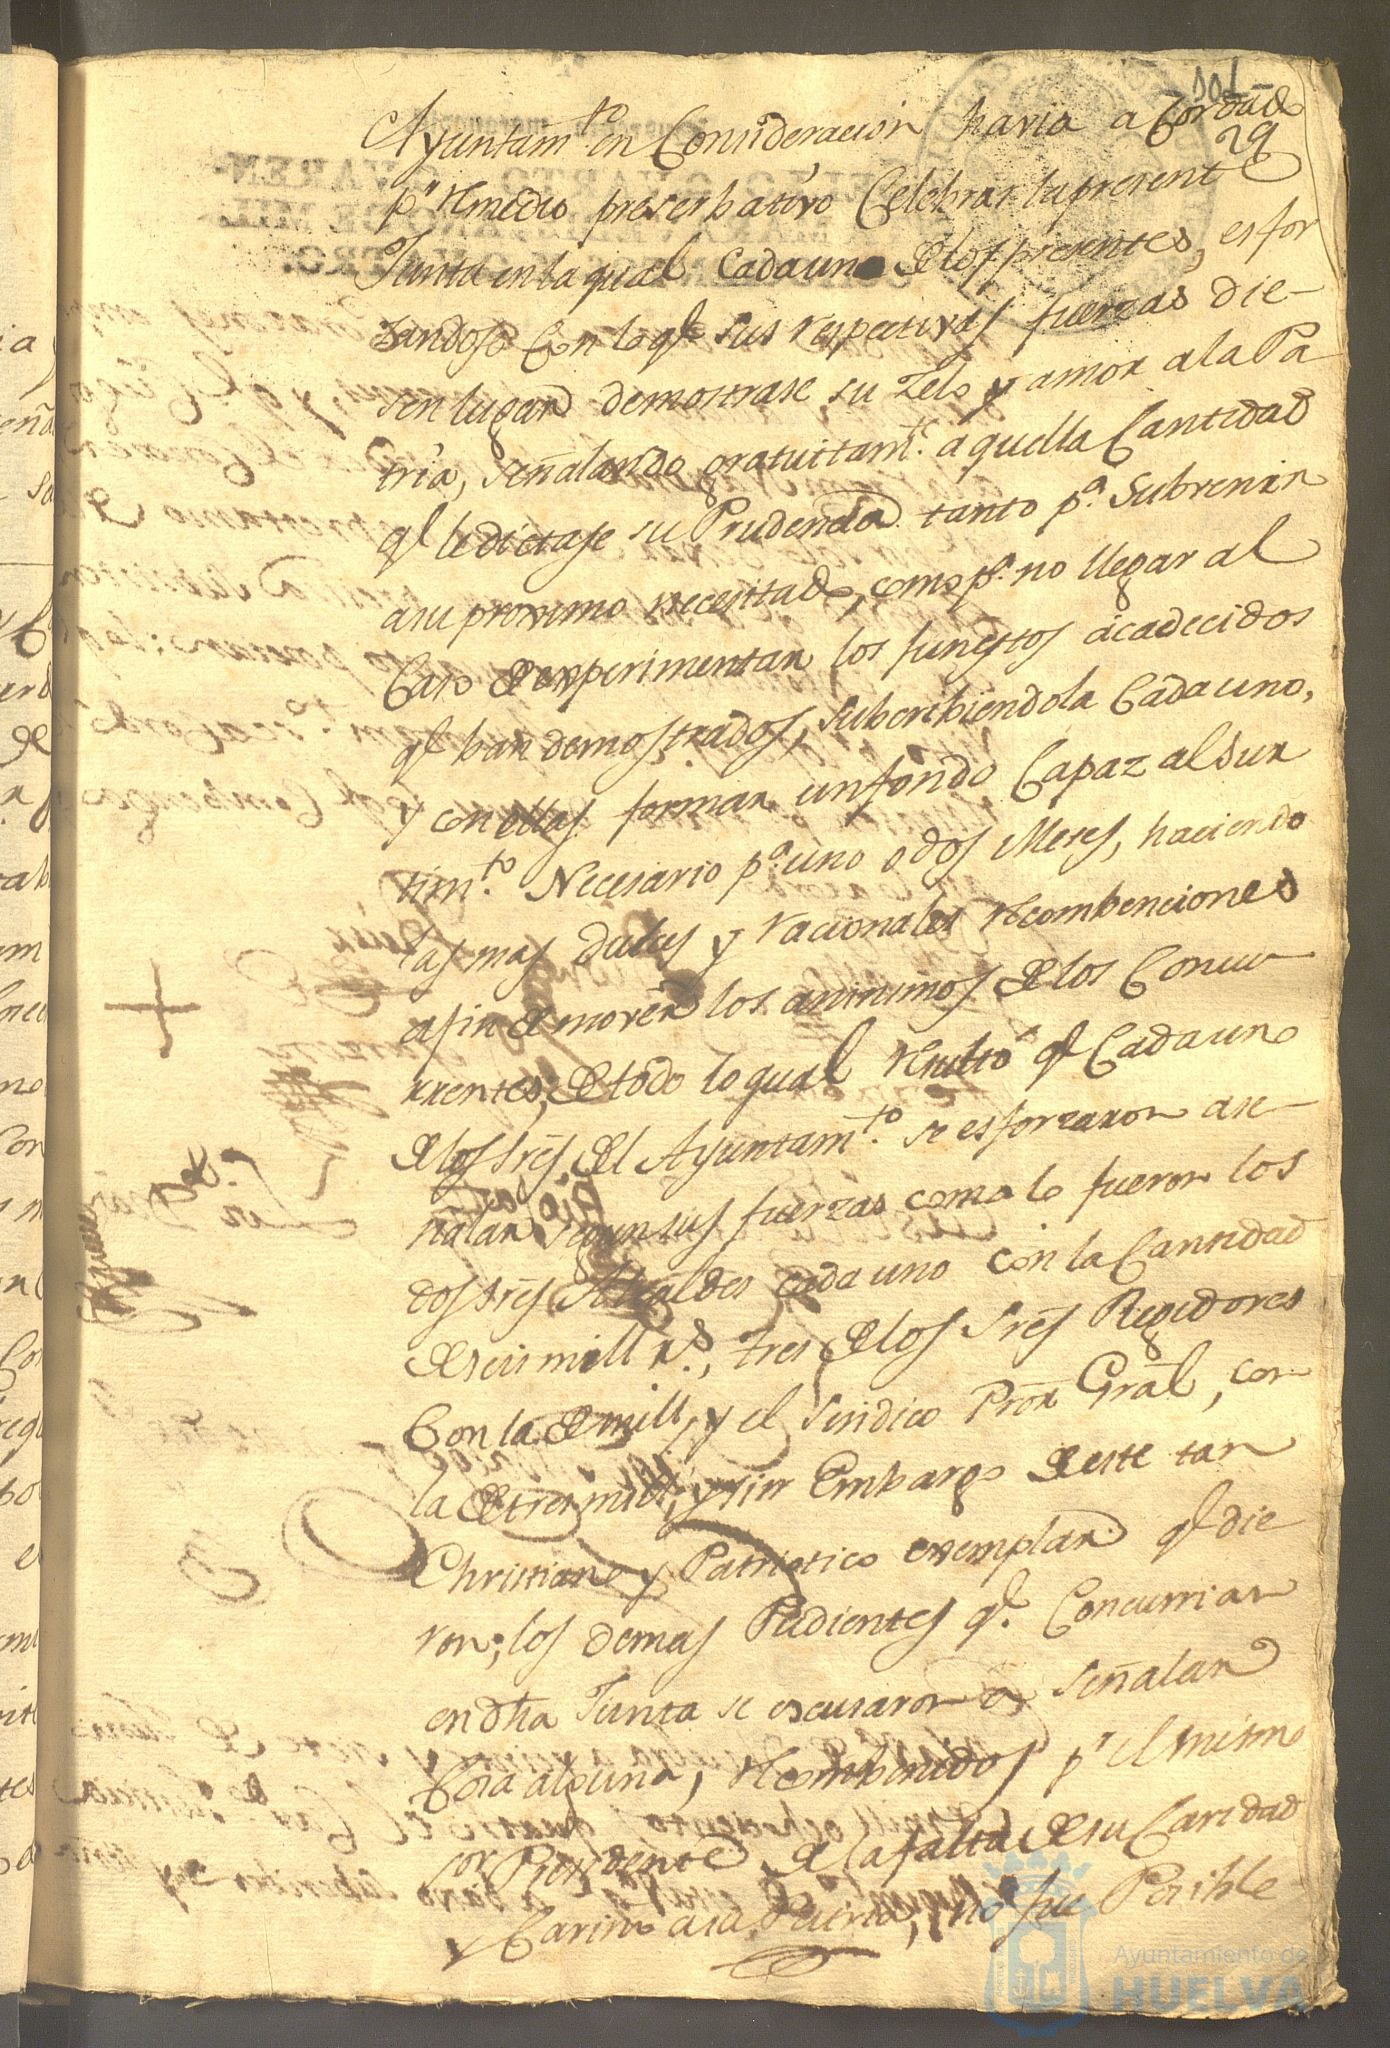 101
29
Ayuntamto. en Consideracion havia acordado
pr. remedio preserbativo Celebrar la presente
Junta en la qual cada uno de los presentes, esfor
zandose con lo qe. sus respectivas fuerzas die-
sen lugar demostrase su Zelo y amor a la Pa
tria, señalando gratuitamte. aquella Cantidad
qe. le dictase su Prudencia tanto pa. Subvenir
a su proximo necesitado, como pa. no llegar al
Caso de experimentar los funestos acaecidos
qe. ban demostrados, subscribiendola Cada uno,
y con ellas formar un fondo Capaz al Sur
timto. Necesario pa. uno o dos Meses, haciendo
las mas dulces y racionales recombenciones
a fin de mover los animos de los Concu
rrentes; de todo lo qual resultó qe. Cada uno
de los Sres. del Ayuntamto. se esforzaron a se
ñalar segun sus fuerzas como lo fueron los
dos Sres. Alcaldes cada uno con la Cantidad
de seis mill rs., tres de los Sres. Regidores
Con la de mill, y el Sindico Pror. Gral., con
la de tres mill, y sin Embargo de este tan
Christiano y Patriotico exemplar qe. die
ron; los demas Pudientes qe. Concurrian
en dha Junta se escusaron a señalar
Cosa alguna, recombenidos pr. el mismo
sor Presidente de la falta de su Caridad
y Cariño a la Patria, no fue Posible
Ayuntamiento de
HUELVA